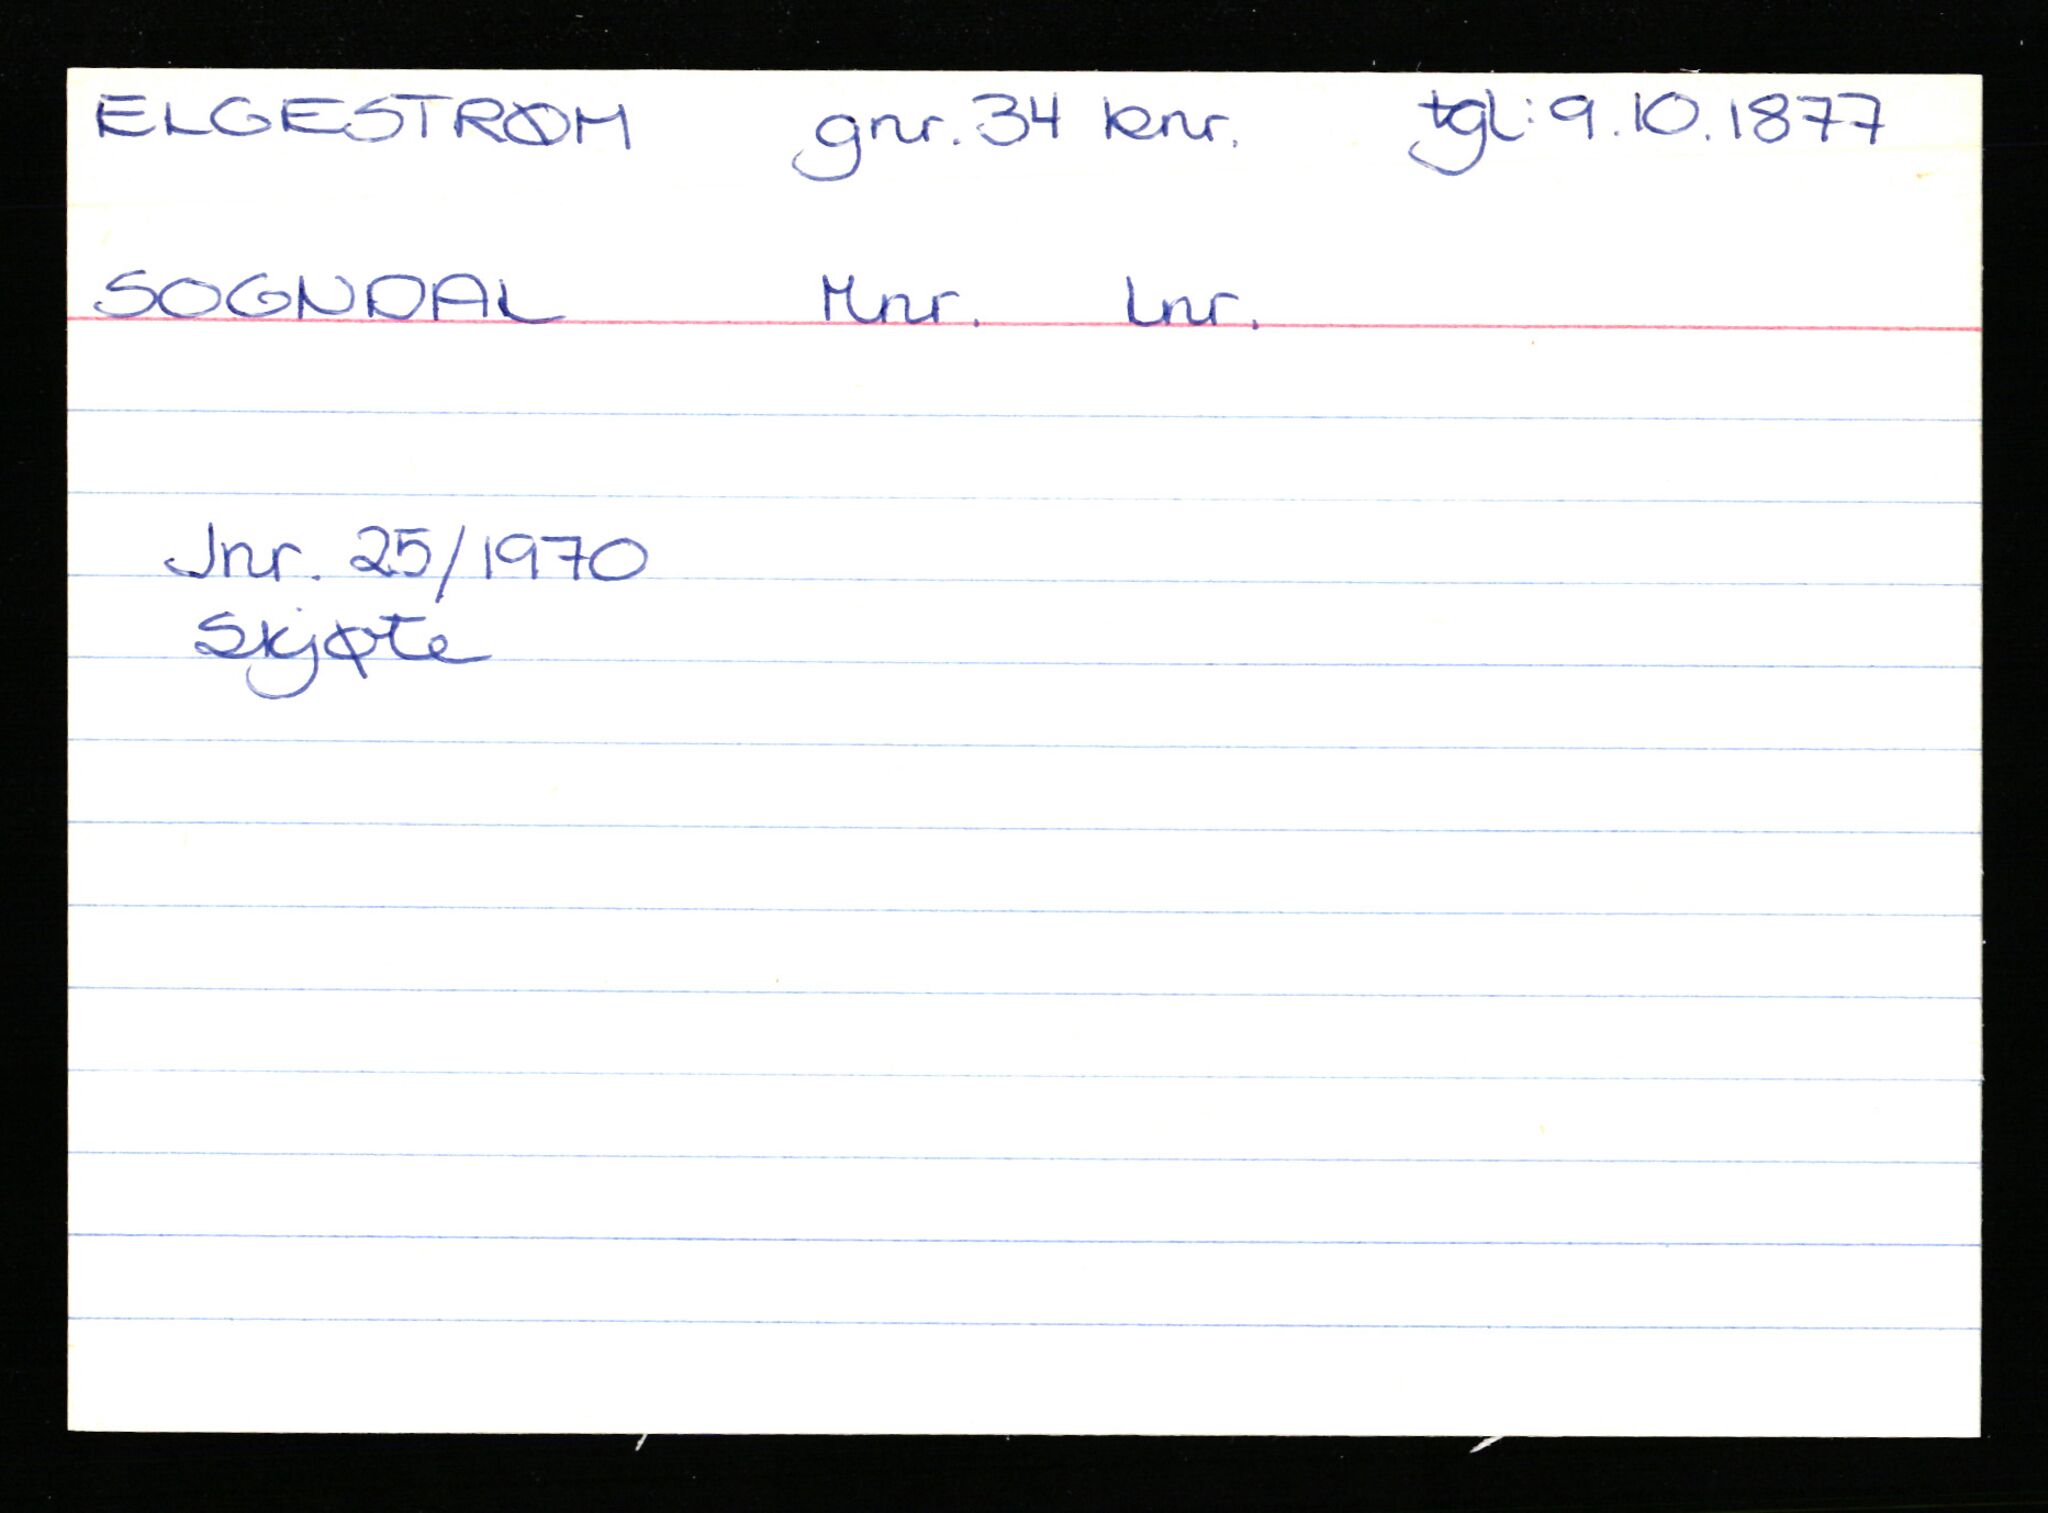 ELGESTRØM gnr. 34 bnr. tgl: 9.10.1877
SOGNDAL Mnr. Lnr.
Jnr. 25/1970
Skjøte